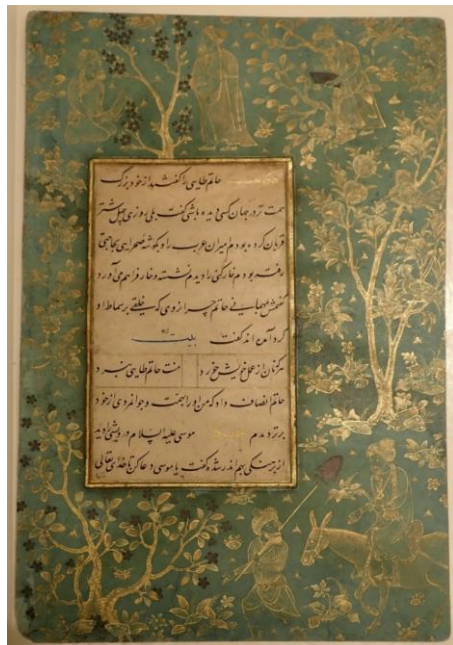 حاتم طایی را گفتند از خود بزرگ
همت تر در جهان کسی دیده باشی گفت بلی روزی چهل شتر
قربان کرده بودم میران عرب را و بگوشه صحرایی بحاجتی
رفته بودم خارکنی را دیدم نشسته و خار فراهم می آورد
گفتمش بمهمانی حاتم چرا نروی که خلقی بر سماط او
گرد آمده اند گفت بیت
هرکه نان از عمل خویش خورد منت حاتم طایی نبرد
حاتم انصاف داد که من او را بهمت و جوانمردی از خود
برتر دیدم موسی علیه السلام درویشی را دید
از برهنگی اندر شده گفت یا موسی دعا کن تا خدای تعالی